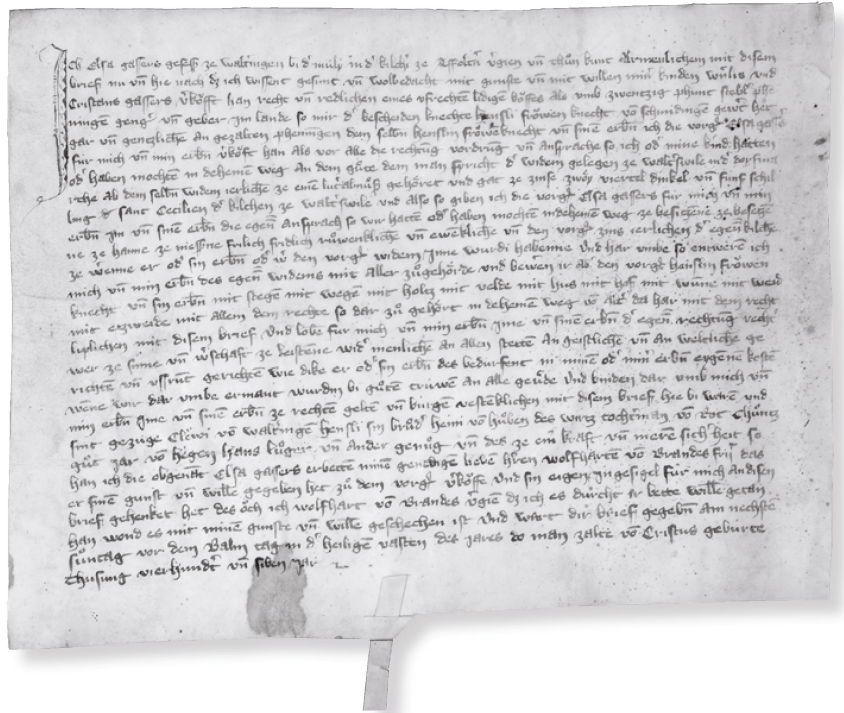 Ich Elsa gassers gesessē ze waltringen bi d' müly in d' kilchꝰ ze vgien vn̄ thůn kunt Allermenlichem mit disem
brief nu vn̄ hie nach dz ich wissent gesunt vn̄ wolbedacht mit gunste vn̄ mit willen minꝰ kinden vnd
Cristans gassers v'köfft han recht vn̄ redlichen eines vfrechtē lidigē köffes Als vmb zwenczig phunt stebl' phe
ningen gengꝰ vn̄ geber im lande so mir d' bescheiden knechte hensli fröwen knecht vō schnidingen gewꝰt het
gar vn̄ genczliche an gezalten phenningen dem selbn̄ henslin fröwēknecht vn̄ sinē erbn̄ ich die vorgꝰ Elsa gasserꝰ
für mich vn̄ min erbn̄ v'köft han als vor abe die rechtūg vordrūg vn̄ ansprache so ich od' mine kind' hatten
od' haben mochtē in dehenē weg An dem gůte dem man spricht d' widem gelegen ze walt'swile in d' dorf
rche Ab dem selbn̄ widem ierliche ze einē gehöret vnd gat ze zinse zwöy viertel dinkel vn̄ funf schil
ling d' sant Cecilien d' kilchen ze walt'swile vnd also so giben ich die vorgꝰ Elsa gassers für mich vn̄ min
erbn̄ im vn̄ sinē erbn̄ die egen̄ ansprach so wir hattē od' haben mochtē in dehenē weg ze besiczene ze beseczē
ne ze hanne ze niessne frilich fridlich růwenkliche vn̄ ewekliche vn̄ den vorgꝰ zins ierlichen d' egen̄ kilche
ze wꝰenne er od' sin erbn̄ od' wꝰ den vorgꝰ widem Inne wurdi habenne Vnd har vmbe so entwerē ich
mich vn̄ min erbn̄ des egen̄ widems mit Aller zůgehörde vnd bewen ir ab den vorgꝰ henslin fröwen
knecht vn̄ sin erbn̄ mit stegē mit wegē mit holcz mit velde mit hus mit hof mit wunne mit weid
mit mit allem dem rechte so dar zů gehört in dehenē weg da har mit dem recht
liplichen mit disem brief Vnd lobe für mich vn̄ min erbn̄ Ime vn̄ sinē erbn̄ d' egen̄ rechtūg recht
wer ze sinne vn̄ w'schaft ze leistene wid' menliche an allen stettē An geistliche vn̄ an weltliche ge
richten vn̄ vssrūt gerichtē wie dike er od' sin erbn̄ des bedurfent in minē od' minꝰ erbn̄ eygene kostē
wēne wir dar vmbe ermant wurdin bi gůtē trüwē an alle geu'de Vnd binden dar vmb mich vn̄
min erbn̄ Ime vn̄ sinē erbn̄ ze rechtē geltē vn̄ bürgē vesteklichen mit disem brief hie bi warē vnd
sint gezüge Cleuwi vō waltringē hensli sin brůd' heini vō hůben des wartz tochtꝰman vō Rot Chůntz
gůt jar vō högen hans vn̄ ander genůg vn̄ des ze einꝰ kraft vn̄ merē sichꝰheit so
han ich die obgenāt Elsa gassers erbettē minē genedigē lieben hꝰren wolfhartē vō Brandes friꝰ das
er sinē gunst vn̄ wille gegeben het zů dem vorgꝰ v'köffe vnd sin eigen Ingesigel für mich an disen
brief gehenket het des öch ich wolfhart vō Brandes v'giēn dz ich es durch ir bette wille getan
han wond es mit minē gunste vn̄ wille geschechen ist Vnd wart dir brief gegebn̄ Am nechstē
sunt̄ag vor dem Balm tag in d' heiligē vasten des jares do man zalte vō Cristus gebürte
thusung vierhundꝰt vn̄ siben jar